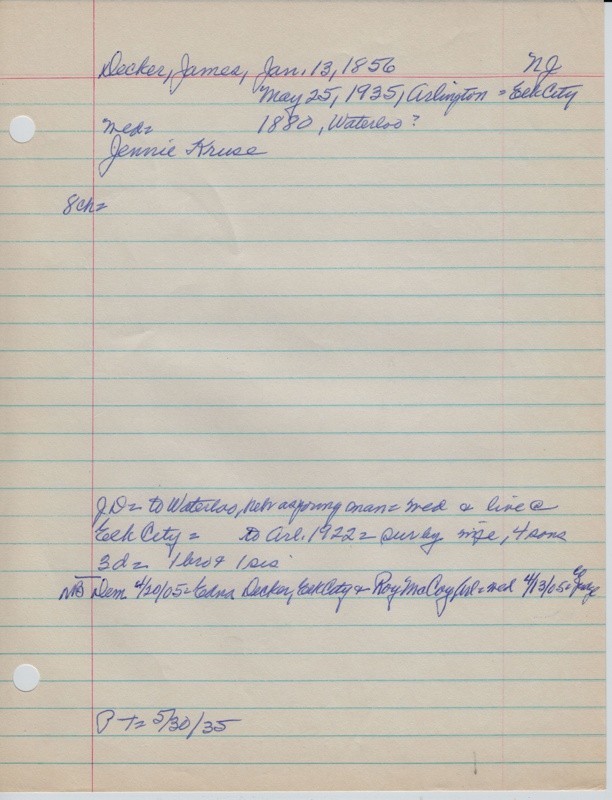 Decker, James, Jan. 13, 1856 NJ
May 25, 1935, Arlington = Elk City
Med= 1880, Waterloo?
Jennie Kruse
8ch=
J.D= to Waterloo, Nebr as young man= med & live @
Elk City = to Arl. 1922 = sur by wife, 4 sons
3d= 1 bro & 1 sis
NB Dem 4/20/05= Edna Decker, Elk City & Roy McCoy, Arl= med 4/13/05=
P-T= 5/30/35